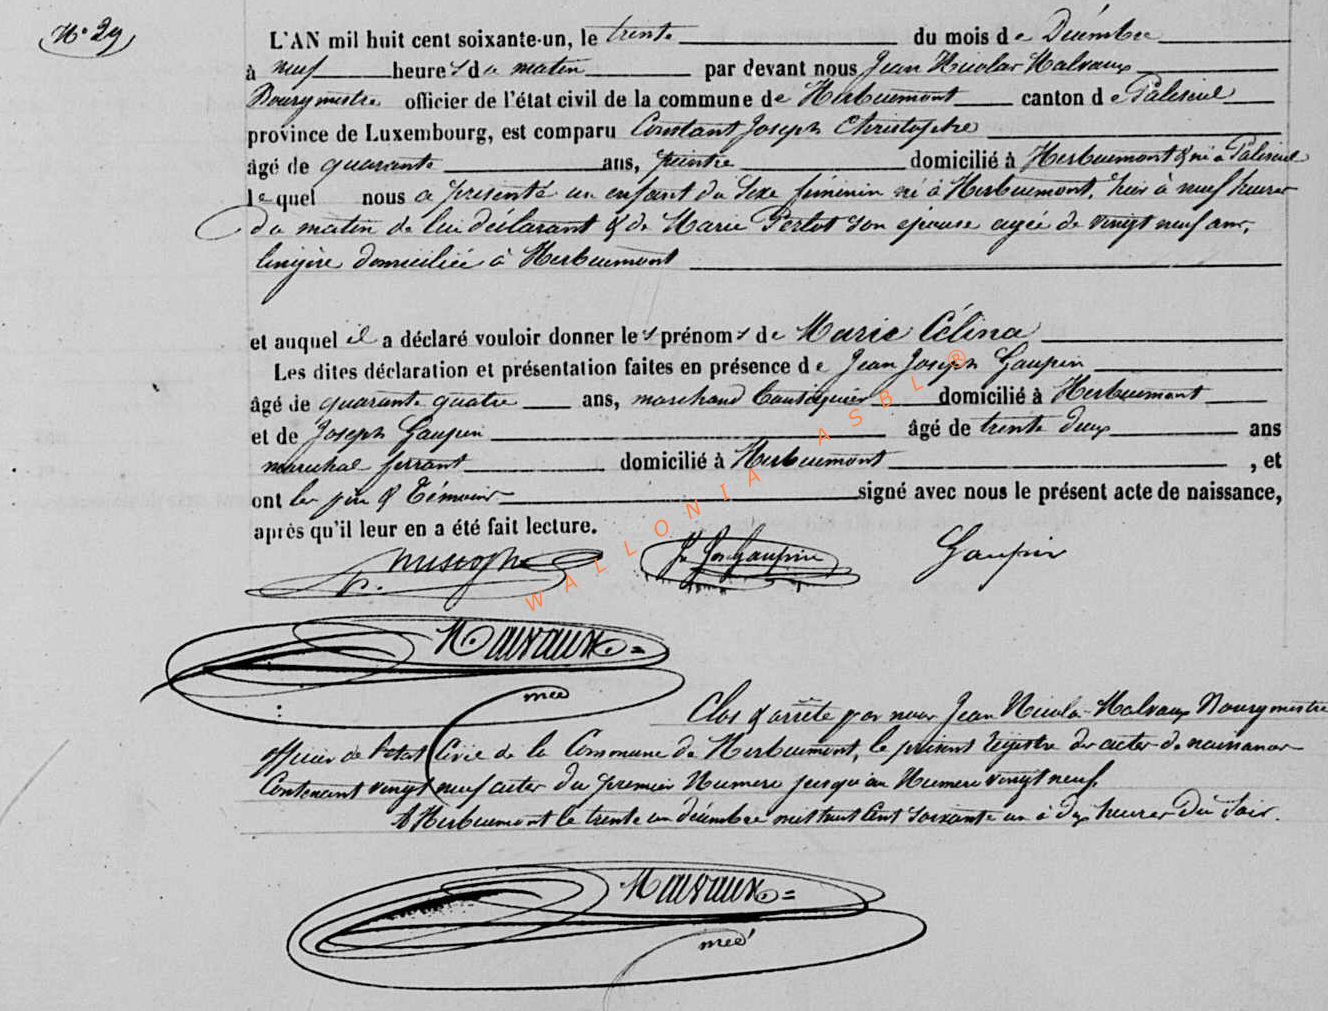 N° 29
L'AN mil huit cent soixante-un, le trente du mois de Décembre
à neuf heures du matin par devant nous Jean Nicolas Malvaux
Bourgmestre officier de l'état civil de la commune de Herbeumont canton de Paliseul
province de Luxembourg, est comparu Constant Joseph Christophe
âgé de quarante ans, peintre domicilié à Herbeumont & né à Paliseul
lequel nous a présenté un enfant du sexe féminin né à Herbeumont, hier à neuf heures
du matin de lui déclarant & de Marie Perlot son épouse agée de vingt neuf ans,
lingère domiciliée à Herbeumont
et auquel il a déclaré vouloir donner les prénoms de Marie Célina
Les dites déclaration et présentation faites en présence de Jean Joseph Gaupin
âgé de quarante quatre ans, marchand domicilié à Herbeumont
et de Joseph Gaupin âgé de trente deux ans
maréchal ferrant domicilié à Herbeumont , et
ont les père & témoins signé avec nous le présent acte de naissance,
après qu'il leur en a été fait lecture.
J. Jos Gaupin Gaupin
Malvaux
Clos & arrêté par nous Jean Nicolas Malvaux Bourgmestre
officier de l'état Civil de la Commune de Herbeumont, le présent registre des actes de naissance
Contenant vingt neuf actes du premier Numero jusqu'au Numero vingt neuf.
A Herbeumont le trente un décembre mil huit Cent soixante un à dix heures du soir.
Malvaux
WALLONIA ASBL ®